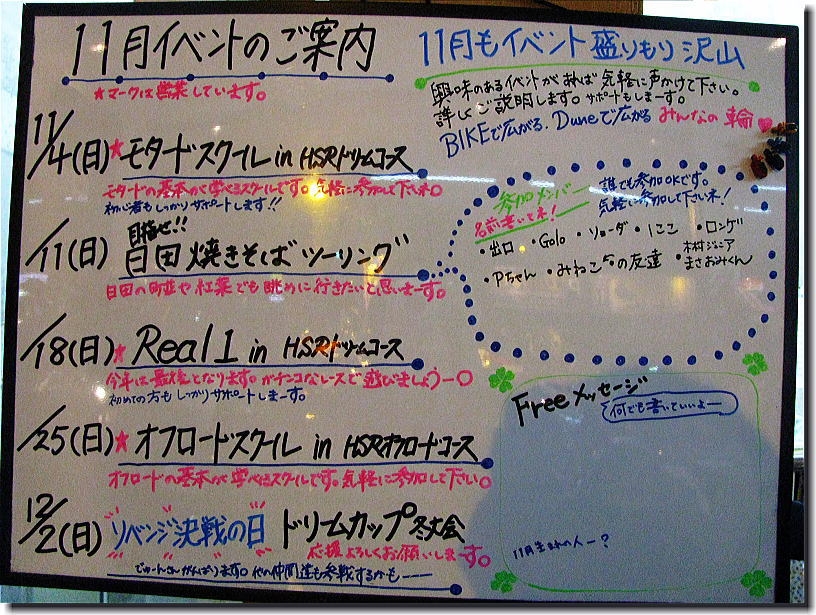 11月イベントのご案内
★マークは営業しています。
11/4(日)★モタードスクール in HSRドリームコース
モタードの基本から学べるスクールです。気軽に参加して下ネ。
初心者もしっかりサポートします!!
/11(日)
目指せ!!
日田焼きそばツーリング
日田の町並や紅葉でも眺めに行きたいと思いまーす。
/18(日)★Real 1 in HSRドリームコース
今年は最後となります。ガチンコなレースで遊びましょうー。
初めての方もしっかりサポートしまーす。
/25(日)★オフロードスクール in HSRオフロードコース
オフロードの基本から学べるスクールです。気軽に参加して下さい。
12/2(日) リベンジ決戦の日 ドリームカップ冬大会
応援よろしくお願いしまーす。
でゅーんさんがんばります。他の仲間達も参戦するかも――
11月もイベント盛りもり沢山
興味のあるイベントがあれば気軽に声かけて下さい。
詳しくご説明します。サポートもしまーす。
BIKEで広がる、Duneで広がるみんなの輪♥
参加メンバー
名前書いてネ!
誰でも参加OKです。
気軽に参加して下さいネ!
・出口 ・Golo ・ショーダ ・ここ ・ロンゲ
・Pちゃん ・みねこ ・の友達 ・木村ジュニア
まさおみくん
Freeメッセージ
何でも書いていいよー
11月生まれの人ー?